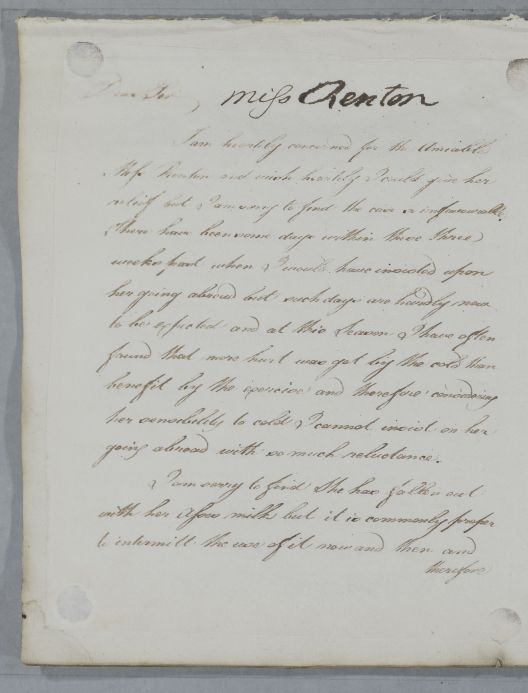 Dear Sir, Miss Renton
I am heartily concerned for the Amiable
Miss Renton and wish heartily I could give her
relief but I am sorry to find the case so unfavourable.
There have been some days within these three
weeks past when I would have insisted upon
her going abroad but such days are hardly now
to be expected and at this Season I have often
found that more hurt was got by the cold than
benefit by the exercise and therefore considering
her sensibility to cold I cannot insist on her
going abroad with so much reluctance.
I am sorry to find She has fallen out
with her Asses milk but it is commonly proper
to intermitt the use of it now and then and
therefore